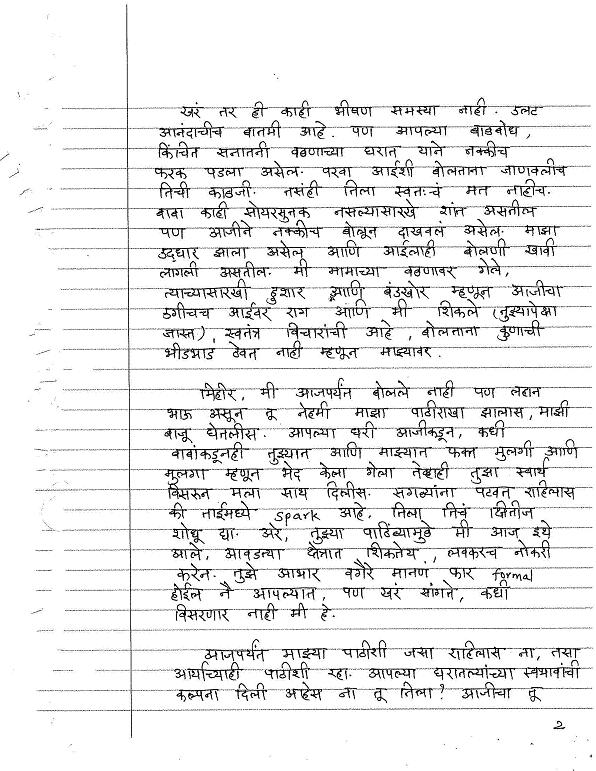 खरं तर ही काही भीषण समस्या नाही. उलट
आनंदाचीच बातमी आहे. पण आपल्या बाळबोध,
किंचित सनातनी वळणाच्या घरात याने नक्कीच
फरक पडला असेल. परवा आईशी बोलताना जाणवलीच
तिची काळजी. तसंही तिला स्वतःचं मत नाहीच.
बाबा काही सोयरसुतक नसल्यासारखे शांत असतील
पण आजीने नक्कीच बोलून दाखवलं असेल. माझा
उद्धार झाला असेल आणि आईलाही बोलणी खावी
लागली असतील. मी मामाच्या वळणावर गेले,
त्याच्यासारखी हुशार आणि बंडखोर म्हणून आजीचा
उगीचच आईवर राग आणि मी शिकले (तुझ्यापेक्षा
जास्त), स्वतंत्र विचारांची आहे, बोलताना कुणाची
भीडभाड ठेवत नाही म्हणून माझ्यावर.
मिहीर, मी आजपर्यंत बोलले नाही पण लहान
भाऊ असून तू नेहमी माझा पाठीराखा झालास, माझी
बाजू घेतलीस. आपल्या घरी आजीकडून, कधी
बाबांकडूनही तुझ्यात आणि माझ्यात फक्त मुलगी आणि
मुलगा म्हणून भेद केला गेला तेव्हाही तुझा स्वार्थ
विसरून मला साथ दिलीस. सगळ्यांना पटवत राहिलास
की ताईमध्ये spark आहे. तिला तिचं क्षितीज
शोधू द्या. अरे, तुझ्या पाठिंब्यामुळे मी आज इथे
आले, आवडत्या क्षेत्रात शिकतेय, लवकरच नोकरी
करेन. तुझे आभार वगैरे मानणं फार formal
होईल नै आपल्यात, पण खरं सांगते, कधी
विसरणार नाही मी हे.
आजपर्यंत माझ्या पाठीशी जसा राहिलास ना, तसा
आर्याच्याही पाठीशी रहा. आपल्या घरातल्यांच्या स्वभावांची
कल्पना दिली आहेस ना तू तिला? आजीचा तू
2